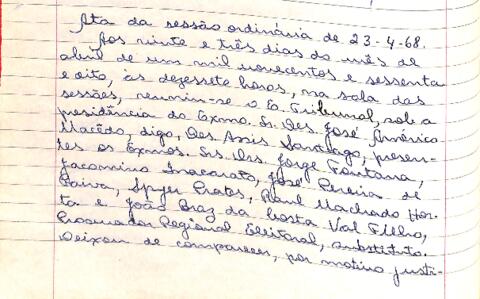 Ata da sessão ordinária de 23-4-68.
Aos vinte e três dias do mês de
abril de um mil novecentos e sessenta
e oito, às dezessete horas, na sala das
sessões, reuniu-se o E. Tribunal, sob a
presidência do Exmo. Sr. Des. José Américo
Macêdo, digo, Des. Assis Santiago, presen-
tes os Exmos. Srs. Drs. Jorge Fontana,
Jacomino Inacarato, José Pereira de
Paiva, Spyer Prates, Raul Machado Hor-
ta e João Braz da Costa Val Filho,
Procurador Regional Eleitoral, substituto.
Deixou de comparecer, por motivo justi-